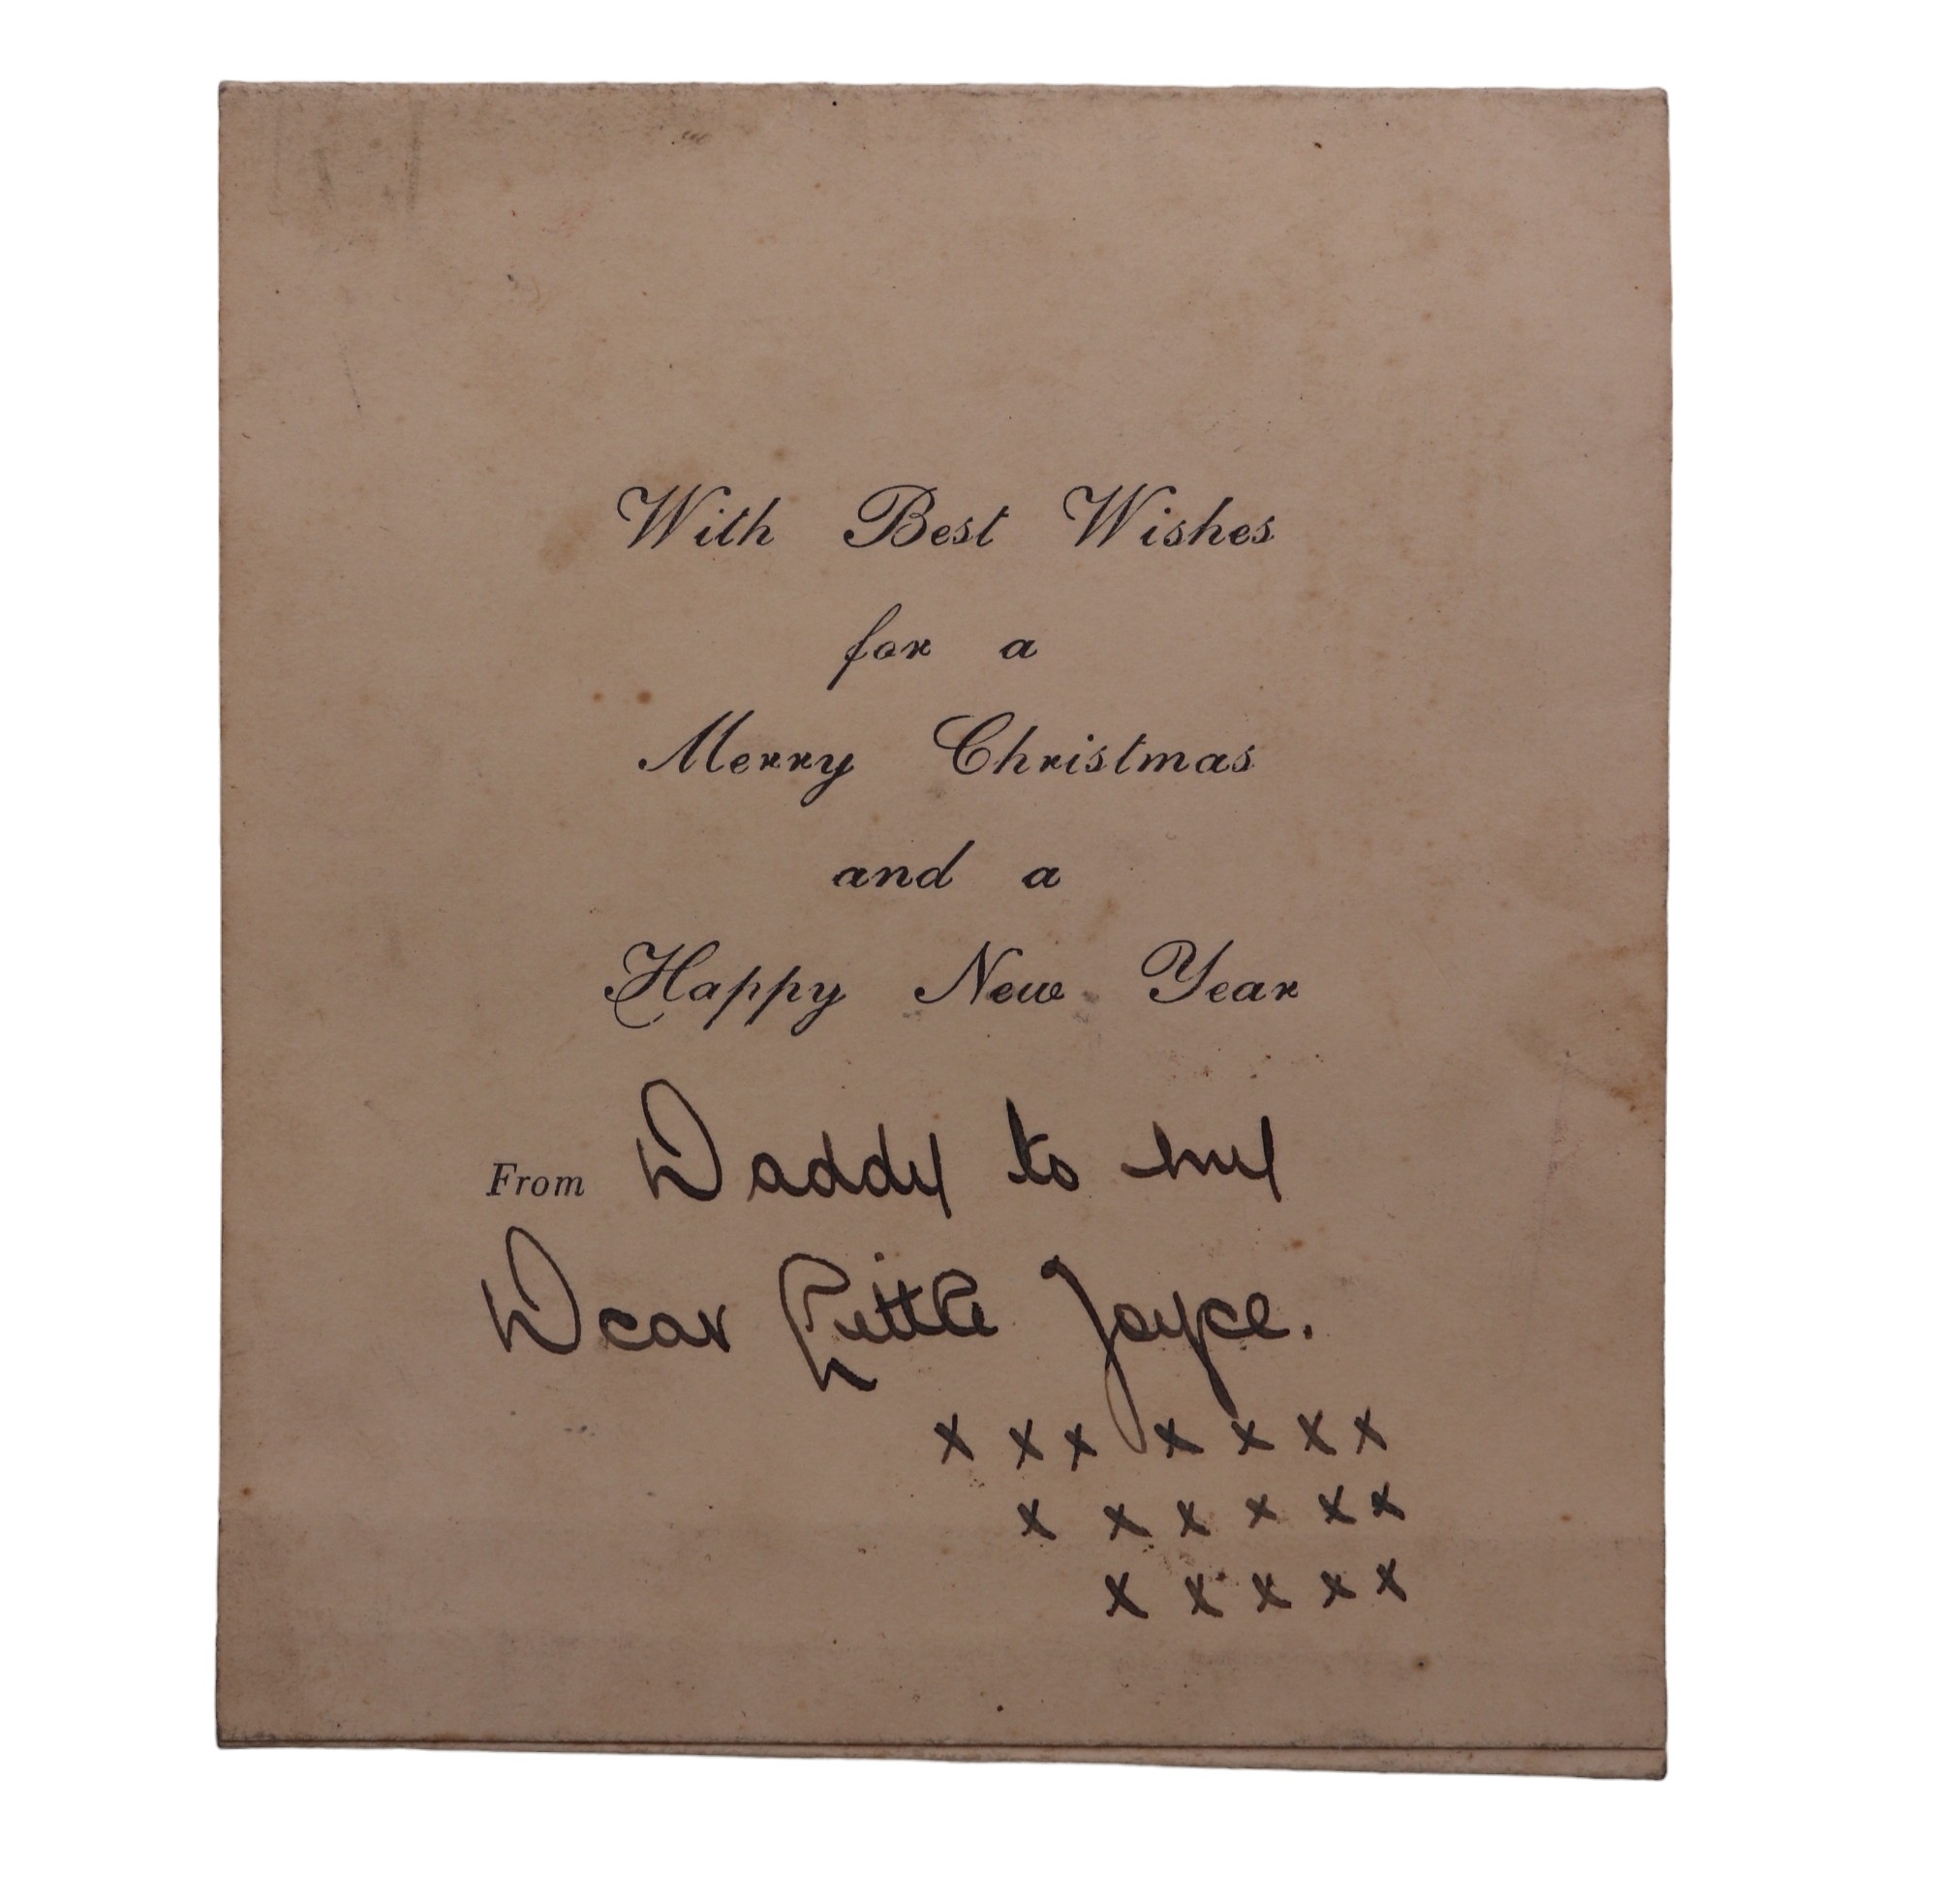 With Best Wishes
for a
Merry Christmas
and a
Happy New Year
From Daddy to my
Dear Little Joyce.
x x x x x x x
x x x x x x
x x x x x